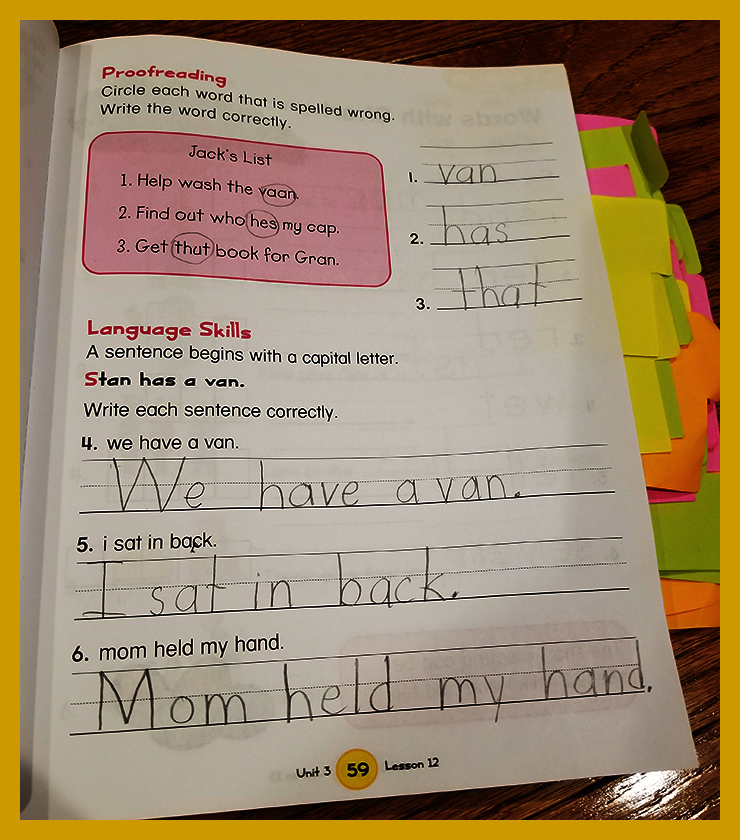 Proofreading
Circle each word that is spelled wrong.
Write the word correctly.
Jack's List
1. Help wash the vaan.
2. Find out who hes my cap.
3. Get thut book for Gran.
1. van
2. has
3. that
Language Skills
A sentence begins with a capital letter.
Stan has a van.
Write each sentence correctly.
4. we have a van.
We have a van.
5. i sat in back.
I sat in back.
6. mom held my hand.
Mom held my hand.
Unit 3 59 Lesson 12